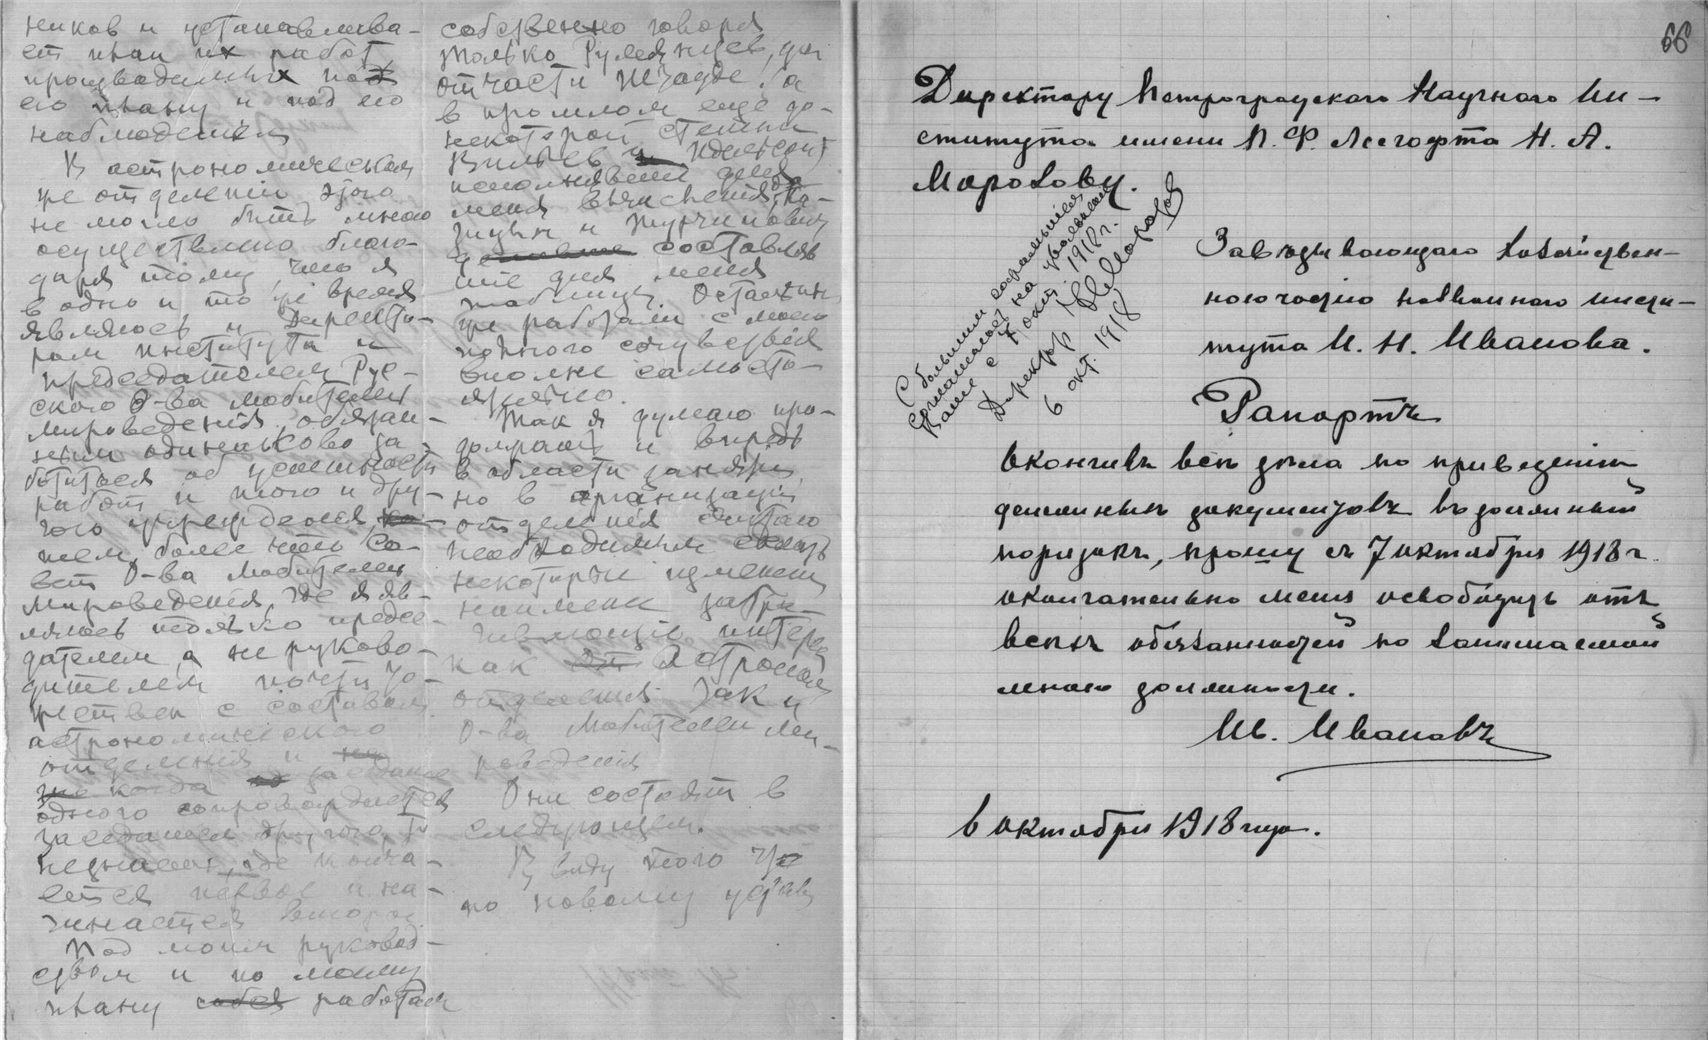 ников и устанавлива-
ет план их работ,
производимых под
его плану и под его
наблюдением
В астрономическом
же отделении этого
не могло быть мною
осуществлено благо-
даря тому, что я
в одно и то же время
являюсь и Директо-
ром Института и
председателем Рус-
ского О-ва Любителей
Мироведения, обязан-
ным одинаково за-
ботиться об успешности
работ и того и дру-
гого учреждения
тем более что Со-
вет О-ва Любителей
Мироведения, где я яв-
ляюсь только предсе-
дателем, а не руково-
дителем почти то-
жествен с составом
астрономического
отделения и
когда заседание
одного сопровождается
заседанием другого, то
незнаем, где конча-
ется первое и на-
чинается второе
Под моим руковод-
ством и по моему
плану работали
собственно говоря
только Румянцев, да
отчасти Шгауде. а
в прошлом еще до
некоторой степени
Вильев и Идельсон,
исполнявшие для
меня вычисления, Ка-
зицын и Журчинович
составляв
шие для меня
таблицы. Остальные
же работали с моего
полного сочувствия
вполне самосто-
ятельно.
Так я думаю про-
должать и впредь
в области занятий,
но в организации
отделения считаю
необходимым сделать
некоторые изменения
наименее затра-
гивающие интересы
как Астроном
отделения так и
О-ва Любителей Ми-
роведения
Они состоят в
следующем.
В виду того что
по новому уставу
66
Директору Петроградскаго Научнаго Ин-
ститута имени П. Ф. Лесгафта Н. А.
Морозову.
С большим сожалением
соглашаюсь на увольнение
Ваше с 7 окт. 1918 г.
Директор Н Морозов
6 окт. 1918
Заведывающаго хозяйствен-
ною частью названнаго инсти-
тута И. Н. Иванова.
Рапортъ
Окончивъ все дела по приведению
денежныхъ документовъ въ должный
порядокъ, прошу съ 7 октября 1918 г.
окончательно меня освободить отъ
всехъ обязанностей по занимаемой
мною должности.
Ив. Ивановъ
6 октября 1918 года.